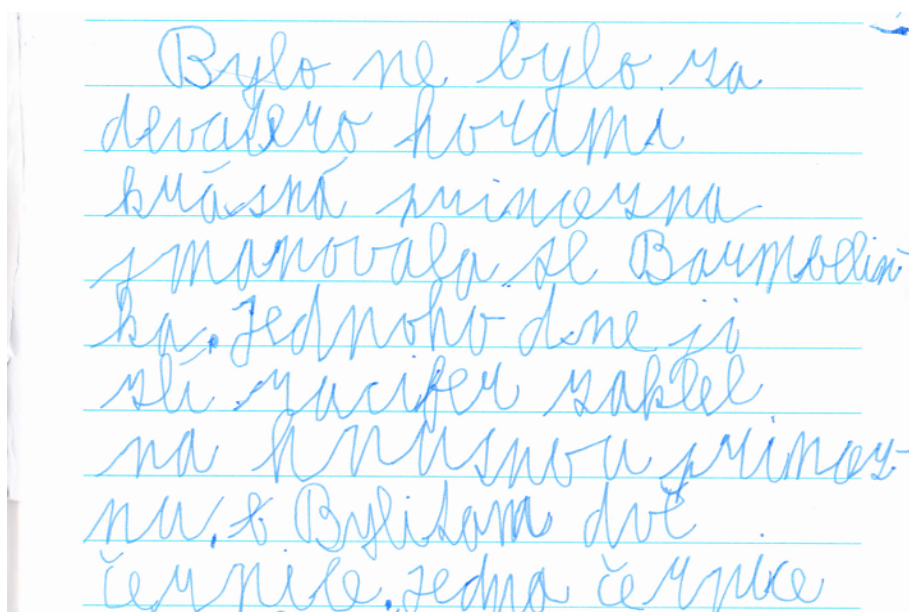 Bylo ne bylo za
devatero horami
krásná princezna
jmanovala se Barmbelín
ka. Jednoho dne ji
zlí zucifer zaklel
na hnusnou princez-
nu. Byli tam dvě
černice. Jedna černice